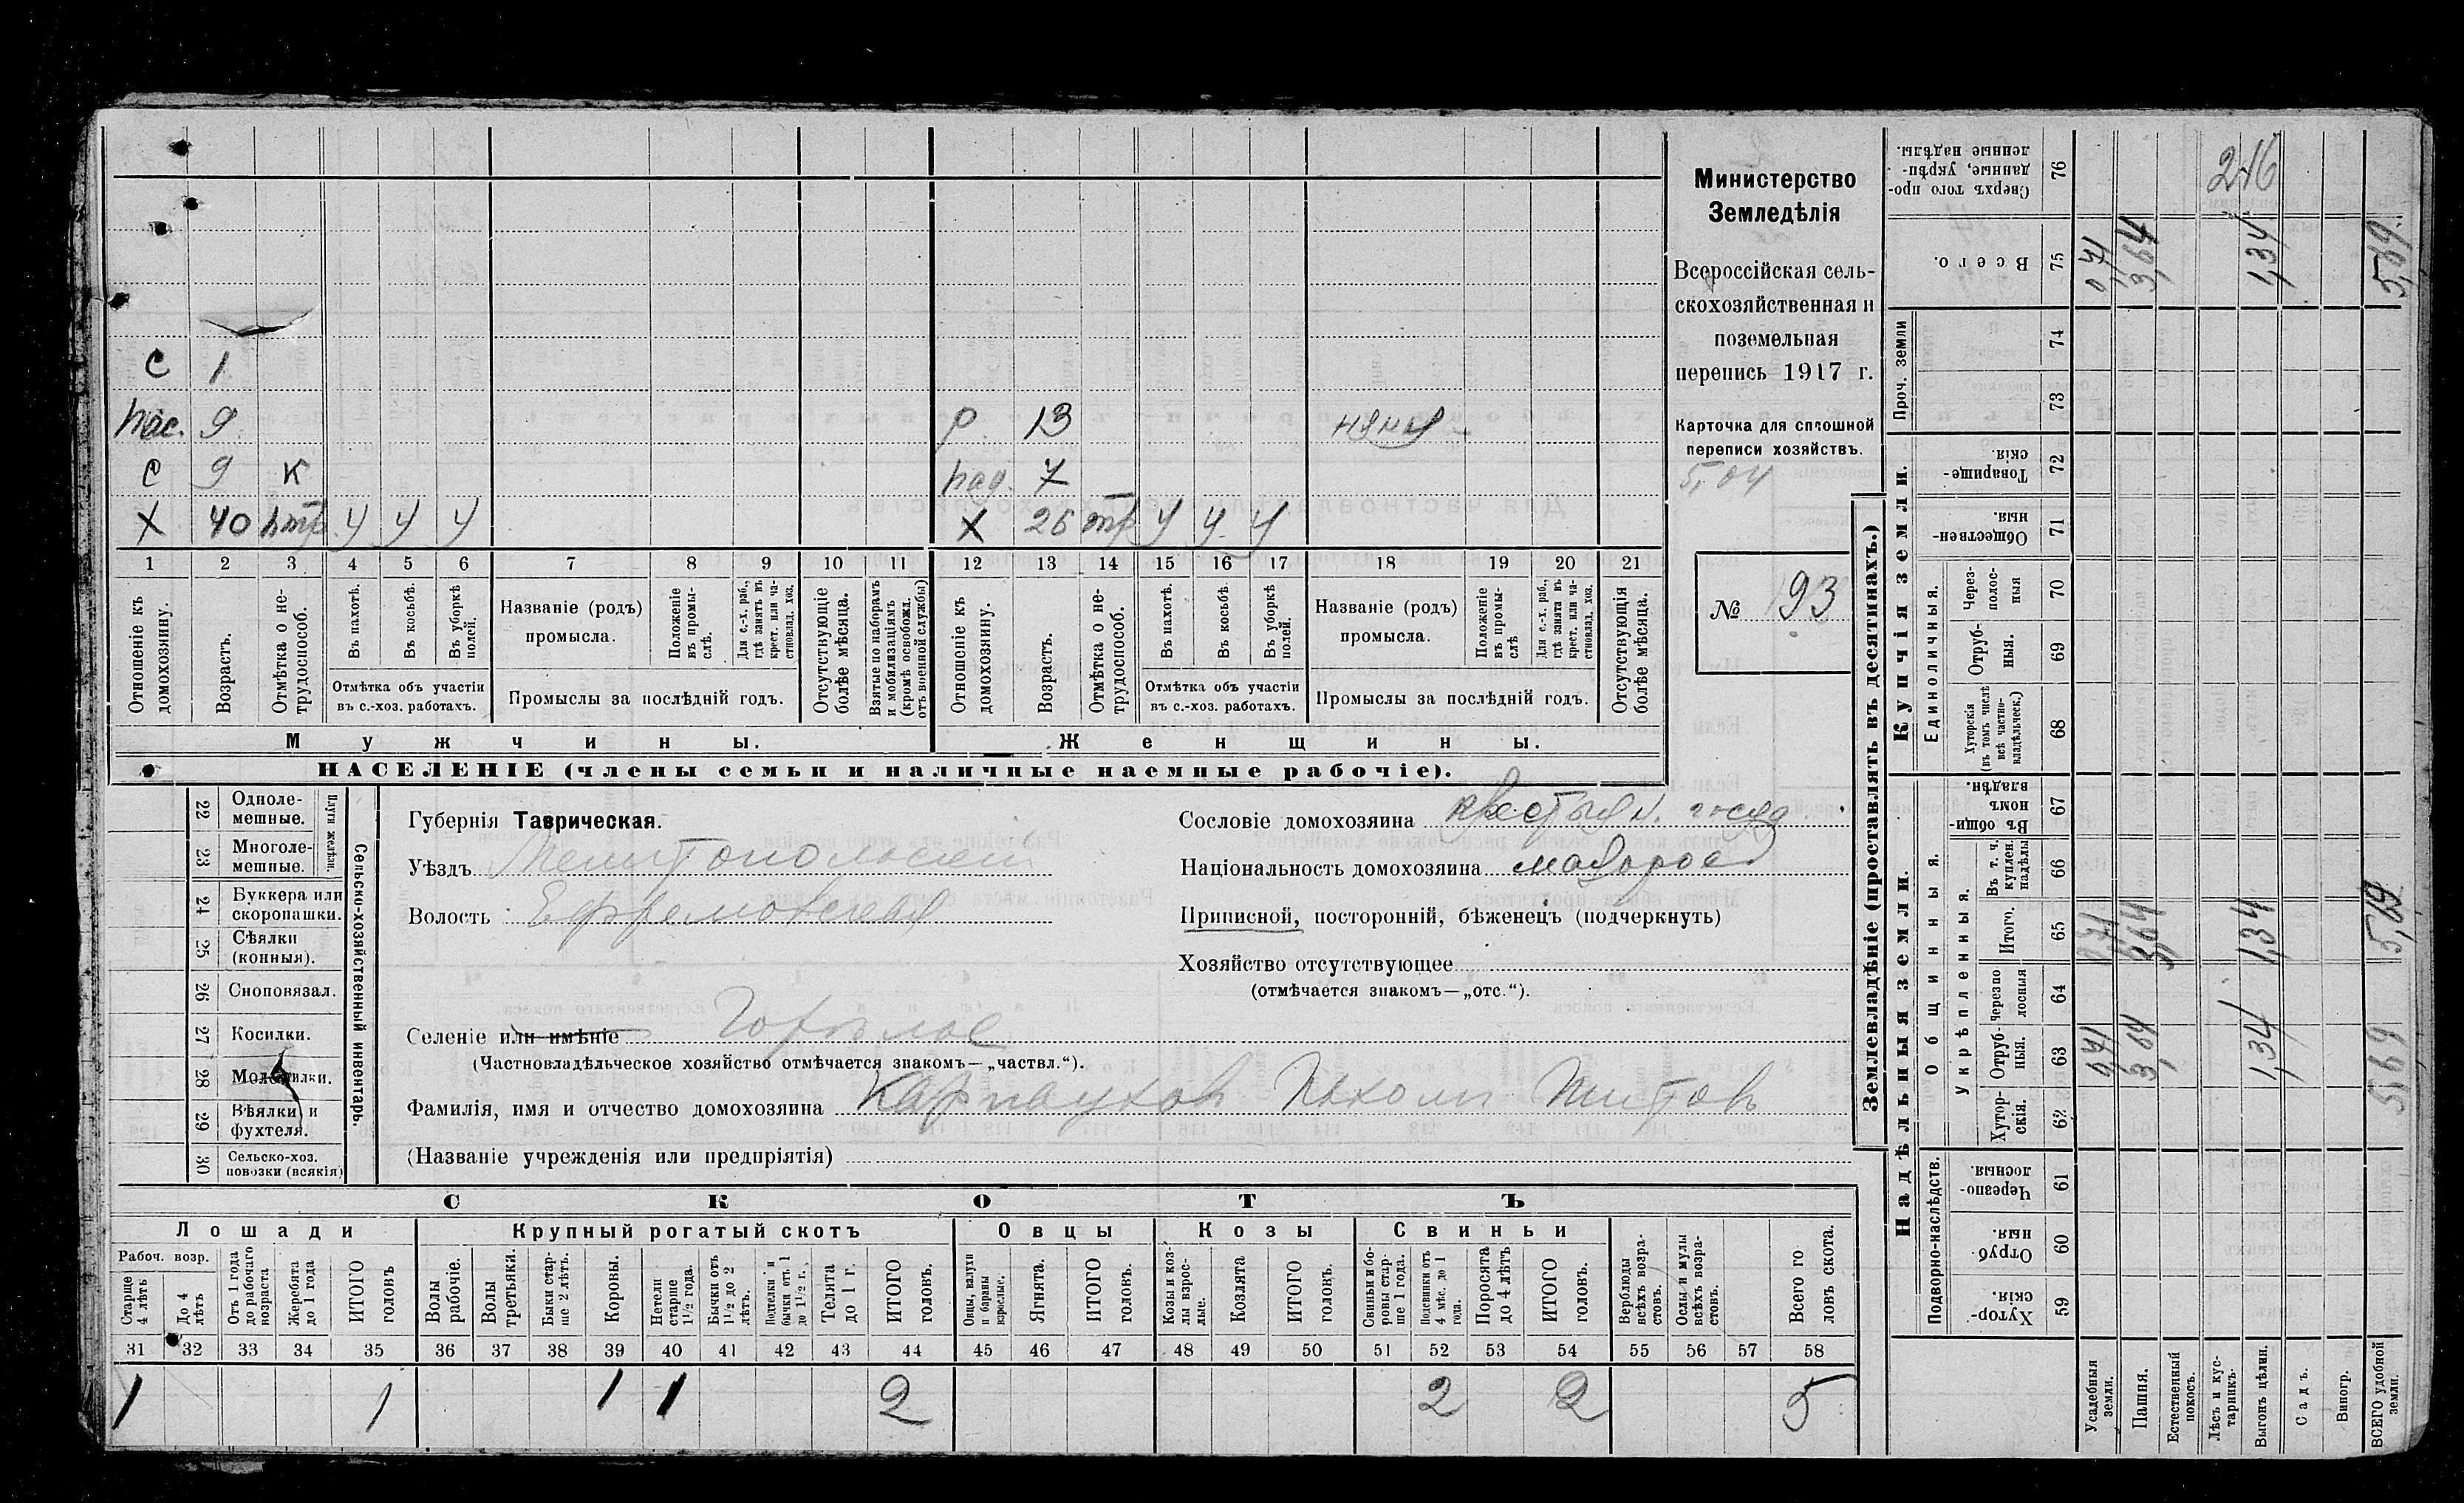 С 1
пас. 9 Р. 13 няня
С 9 К пад. 7
Х 40 птр. У У У Х 26 тр У У У
1 2 3 4 5 6 7 8 9 10 11 12 13 14 15 16 17 18 19 20 21
Отношеніе къ домохозяину.
Возрастъ.
Отмѣтка о нетрудоспособ.
Въ пахотѣ.
Въ косьбѣ.
Въ уборкѣ полей.
Отмѣтка объ участіи
въ с.-хоз. работахъ.
Названіе (родъ)
промысла.
Положеніе въ промы-
слѣ.
Для с.-х. раб.,
гдѣ занятъ въ
крест. или ча-
стновлад. хоз.
Промыслы за послѣдній годъ.
Отсутствующіе
болѣе мѣсяца.
Взятые по наборамъ
и мобилизаціямъ
(кромѣ освобожд.
отъ военной службы)
Отношеніе къ
домохозяину.
Возрастъ.
Отмѣтка о не-
трудоспособ.
Въ пахотѣ.
Въ косьбѣ
Въ уборкѣ
полей.
Отмѣтка объ участіи
въ с.-хоз. работахъ.
Названіе (родъ)
промысла.
Положеніе
въ промы-
слѣ
Для с.-х. раб.,
гдѣ занята въ
крест. или ча-
стновлад. хоз.
Промыслы за послѣдній годъ.
Отсутствующія
болѣе мѣсяца.
Мужчины.
Женщины.
НАСЕЛЕНІЕ (члены семьи и наличные наемные рабочіе).
Министерство
Земледѣлія
Всероссійская сель-
скохозяйственная и
поземельная
перепись 1917 г.
Карточка для сплошной
переписи хозяйствъ.
5,04
№ 93
22 Одноле-
мешные.
23 Многоле-
мешные.
Плуги желѣзн.
24 Буккера или
скоропашки.
25 Сѣялки
(конныя).
26 Сноповязал.
27 Косилки.
28 Молотилки.
29 Вѣялки и
фухтеля.
30 Сельско-хоз.
повозки (всякія)
Сельско-хозяйственный инвентарь.
Губернія Таврическая.
Уѣздъ Мелитопольскій
Волость Ефремовская
Селеніе или имѣніе Горѣлое
(Частновладѣльческое хозяйство отмѣчается знакомъ—„частвл.“).
Фамилія, имя и отчество домохозяина Карпауховъ Пахомъ Титовъ
(Названіе учрежденія или предпріятія)
Сословіе домохозяина крестьян.
Національность домохозяина малорос
Приписной, посторонній, бѣженецъ (подчеркнуть)
Хозяйство отсутствующее
(отмѣчается знакомъ—„отс.“).
СКОТЪ
Лошади
Рабоч. возр.
Старше
4 лѣтъ
До 4
лѣтъ
Отъ 1 года
до рабочаго
возраста
Жеребята
до 1 года
ИТОГО
головъ
Крупный рогатый скотъ
Волы
рабочіе.
Волы
третьяки.
Быки стар-
ше 2 лѣтъ.
Коровы.
Нетели
старше
1½ года.
Бычки отъ
1½ до 2
лѣтъ.
Подтелки и
бычки отъ 1
до 1½ г.
Телята
до 1 г.
ИТОГО
головъ.
Овцы
Овцы, валухи
и бараны
взрослые.
Ягнята.
ИТОГО
головъ.
Козы
Козы и коз-
лы взрос-
лые.
Козлята
ИТОГО
головъ.
Свиньи
Свиньи и бо-
ровы стар-
ше 1 года.
Подсвинки отъ
4 мѣс. до 1
года.
Поросята
до 4 лѣтъ
ИТОГО
головъ.
Верблюды
всѣхъ возра-
стовъ.
Ослы и мулы
всѣхъ возра-
стовъ.
Всего го
ловъ скота.
31 32 33 34 35 36 37 38 39 40 41 42 43 44 45 46 47 48 49 50 51 52 53 54 55 56 57 58
1 1 1 1 2 2 2 5
Землевладѣніе (проставлять въ десятинахъ.)
Надѣльныя земли.
Купчія земли.
Проч. земли
Подворно-наслѣдств.
Общинныя.
Укрѣпленныя.
Единоличныя.
Хутор-
скія. 59
Отруб
ныя. 60
Черезпо-
лосныя. 61
Хутор-
скія. 62
Отруб-
ныя. 63
Черезпо
лосныя 64
Итого. 65
Въ т. ч.
куплен.
надѣлы 66
Въ общин-
номъ
владѣн. 67
Хуторскія
(въ томъ числѣ
всѣ частно-
владѣльческ.) 68
Отруб-
ныя. 69
Через-
полос-
ныя 70
Обществен-
ныя. 71
Товарище-
скія. 72
73
74
Всего. 75
Сверхъ того про-
данные, укрѣп-
ленные надѣлы. 76
Усадебныя
земли.
Пашня.
Естественный
покосъ.
Лѣсъ и кус-
тарникъ.
Выгонъ цѣлин.
Садъ.
Виногр.
ВСЕГО удобной
земли.
0,71 3,64 1,34 5,69
0,71 3,64 1,34 5,69
0,71 3,64 1,34 5,69
216